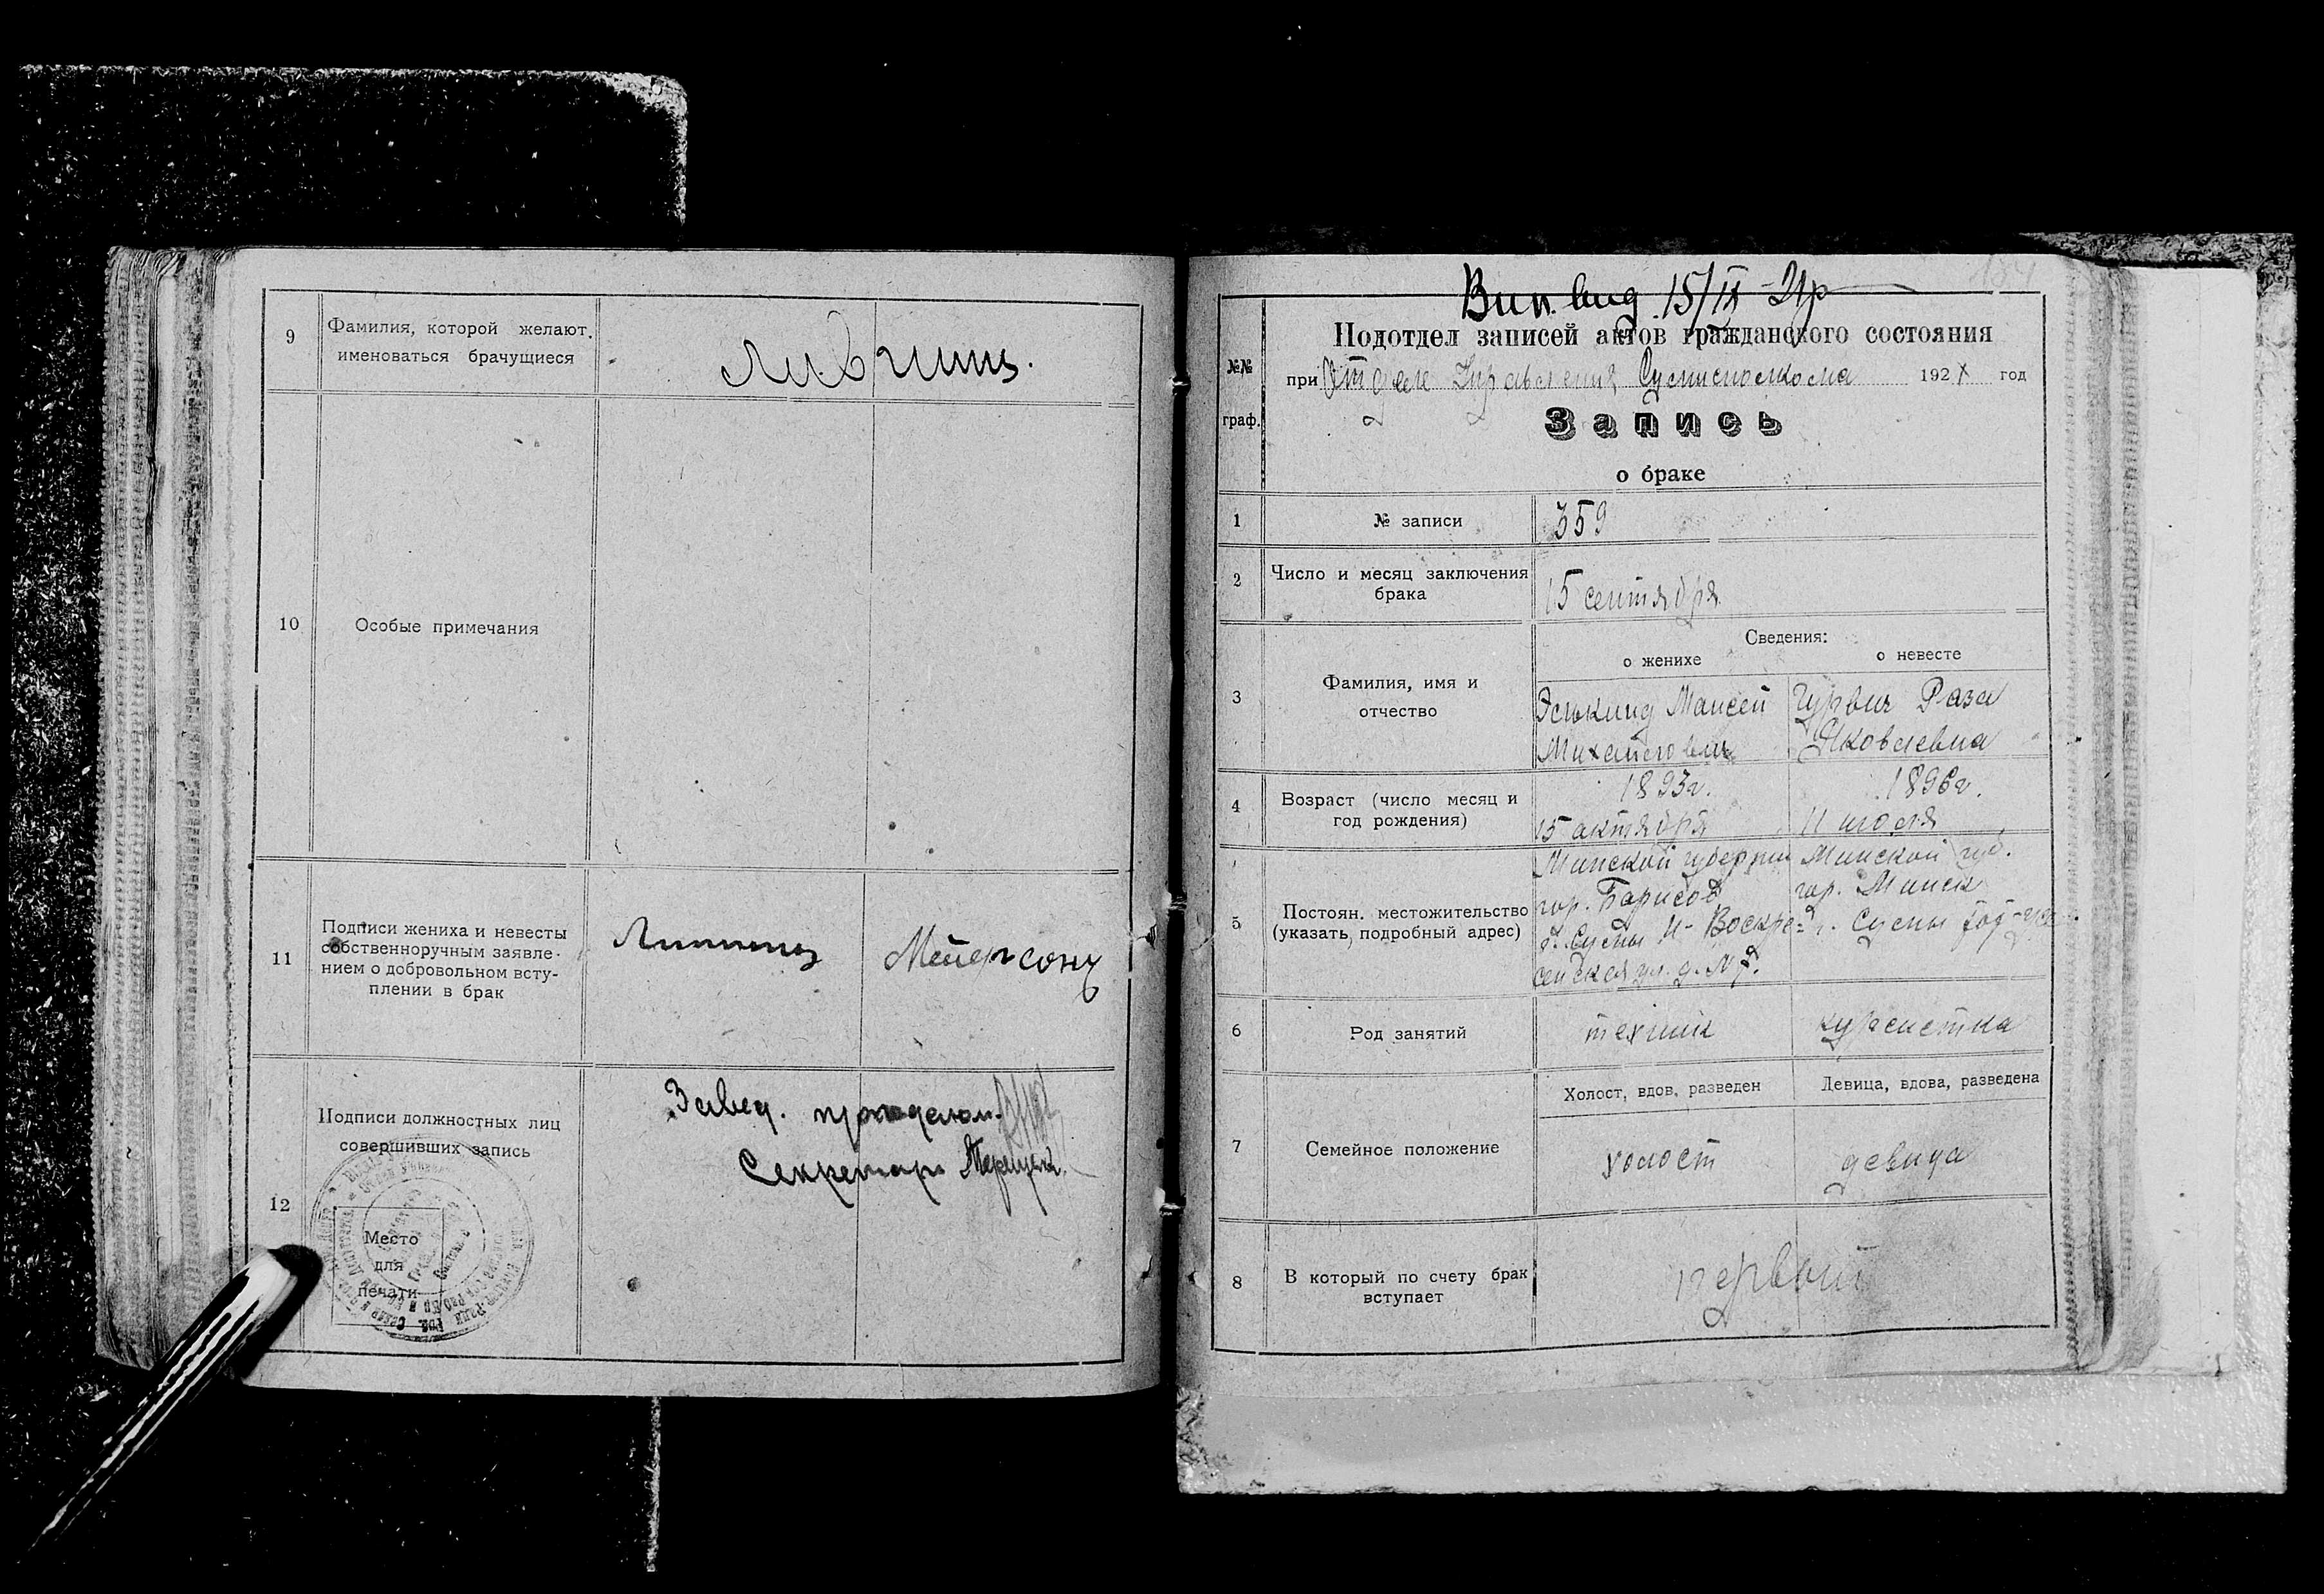 9
Фамилия, которой желают
именоваться брачущиеся
Лившиц.
10
Особые примечания
11
Подписи жениха и невесты
собственноручным заявле-
нием о добровольном всту-
плении в брак
Мейерсону
12
Подписи должностных лиц
совершивших запись
Завед.
Секретарь
Место
для
печати
15/IX
Подотдел записей актов гражданского состояния
№№
граф.
при Отделе Управления Сумисполкома 192 год
Запись
о браке
1
№ записи
359
2
Число и месяц заключения
брака
15 сентября
3
Фамилия, имя и
отчество
Сведения:
о женихе
о невесте
Эслькинд Маисей
Михайлович
Гурвич Раза
Яковлевна
4
Возраст (число месяц и
год рождения)
1893г.
15 актября
1896г.
11 июля
5
Постоян. местожительство
(указать, подробный адрес)
Минской губернии
гор. Барисов
г. Сумы Н- Воскре=
сенская ул. д. №
Минской губ.
гор. Минск
г. Сумы
6
Род занятий
техник
курсистка
7
Семейное положение
Холост, вдов, разведен
Девица, вдова, разведена
холост
девица
8
В который по счету брак
вступает
первый